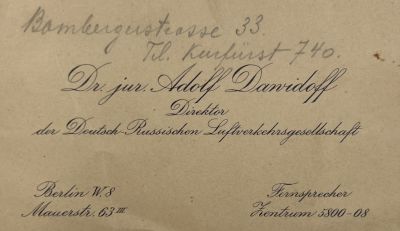 Bambergerstrasse 33.
Tel. Kurfürst 740.
Dr. jur. Adolf Dawidoff
Direktor
der Deutsch-Russischen Luftverkehrsgesellschaft
Berlin W. 8
Mauerstr. 63 III
Fernsprecher
Zentrum 5800-08